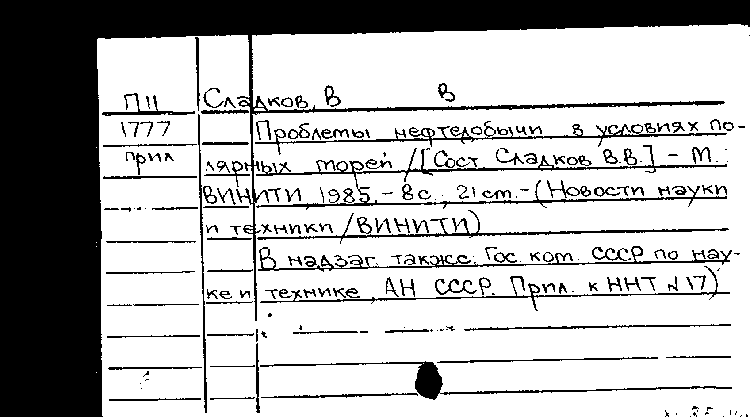 П 11 Сладков, В В
1777 Проблемы нефтедобычи в условиях по-
прил лярных морей /[Сост. Сладков В.В.] – М.:
ВИНИТИ, 1985. – 8 с.; 21 см. – (Новости науки
и техники /ВИНИТИ)
В надзаг. также: Гос. ком. СССР по нау-
ке и технике, АН СССР. Прил. к ННТ N 17)